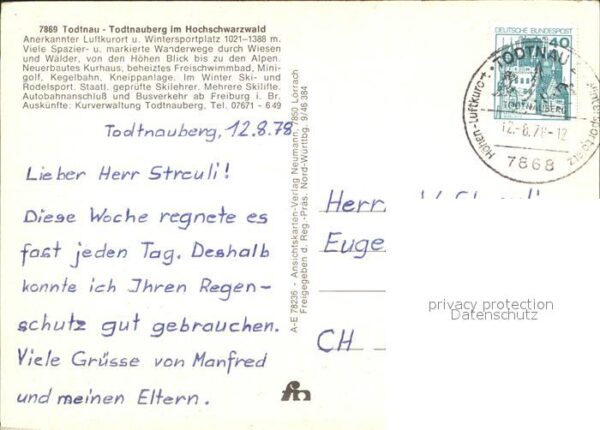 7869 Todtnau - Todtnauberg im Hochschwarzwald
Anerkannter Luftkurort u. Wintersportplatz 1021–1388 m.
Viele Spazier- u. markierte Wanderwege durch Wiesen
und Wälder, von den Höhen Blick bis zu den Alpen.
Neuerbautes Kurhaus, beheiztes Freischwimmbad, Mini-
golf, Kegelbahn, Kneippanlage. Im Winter Ski- und
Rodelsport. Staatl. geprüfte Skilehrer. Mehrere Skilifte.
Autobahnanschluß und Busverkehr ab Freiburg i. Br.
Auskünfte: Kurverwaltung Todtnauberg, Tel. 07671 - 649
Todtnauberg, 12.8.78
Lieber Herr Streuli!
Diese Woche regnete es
fast jeden Tag. Deshalb
konnte ich Ihren Regen-
schutz gut gebrauchen.
Viele Grüsse von Manfred
und meinen Eltern.
A-E 78236 - Ansichtskarten-Verlag Neumann, 7850 Lörrach
Freigegeben d. Reg.-Präs. Nord-Württbg. 9/46 384
fm
DEUTSCHE BUNDESPOST
40
TODTNAU
TODTNAUBERG
12.-8.78.-12
7868
Höhen-Luftkurort
Wintersportplatz
Herr
Euge
CH
privacy protection
Datenschutz